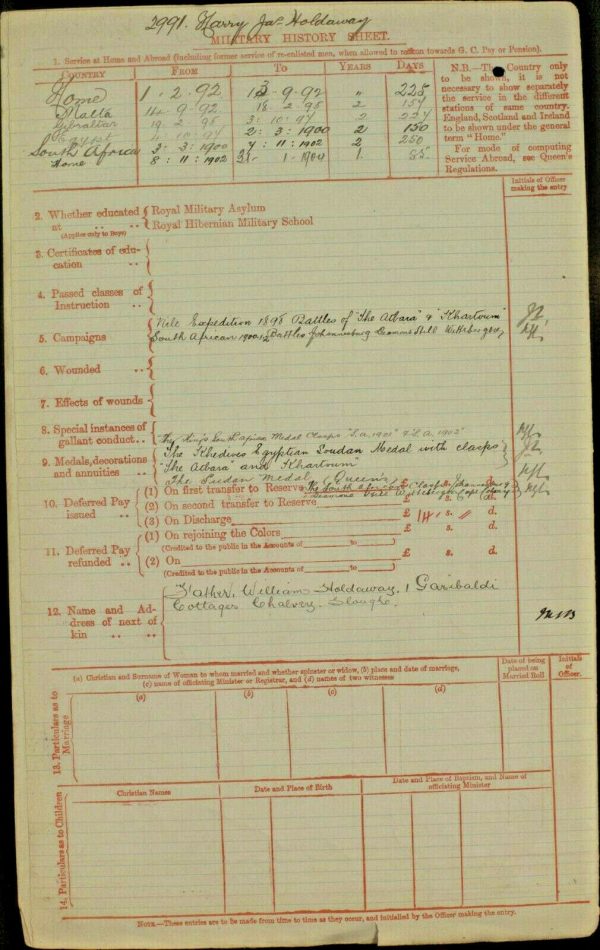 2991. Harry Jas Holdaway
MILITARY HISTORY SHEET.
1. Service at Home and Abroad (including former service of re-enlisted men, when allowed to reckon towards G. C. Pay or Pension).
COUNTRY FROM TO YEARS DAYS
Home 1 . 2 . 92 13 . 9 . 92 " 225
Malta 14 . 9 . 92. 18 . 2 . 95 2 157
Gibraltar 19 . 2 . 95 3 : 10 : 97 2 227
Egypt 4 . 10 . 97 2 : 3 : 1900 2 150
South Africa 3 : 3 : 1900 7 : 11 : 1902 2 250
Home 8 : 11 : 1902 31 . 1 . 1904 1. 85
N.B.—The Country only
to be shown, it is not
necessary to show separately
the service in the different
stations of same country.
England, Scotland and Ireland
to be shown under the general
term "Home."
For mode of computing
Service Abroad, see Queen's
Regulations.
Initials of Officer
making the entry
2. Whether educated at .. ..
(Applies only to Boys)
Royal Military Asylum
Royal Hibernian Military School
3. Certificates of edu-
cation .. ..
4. Passed classes of
Instruction ..
5. Campaigns
Nile Expedition 1898 Battles of "The Atbara" & "Khartoum"
South African 1900-12 Battles Johannesburg Diamond Hill Wittebergen
6. Wounded ..
7. Effects of wounds
8. Special instances of
gallant conduct ..
The King's South Africa Medal Clasps "S.A. 1901" & "S.A. 1902"
9. Medals, decorations
and annuities ..
The Khedives Egyptian Soudan Medal with clasps
"The Atbara" and "Khartoum"
The Sudan Medal (Queen's)
10. Deferred Pay
issued ..
(1) On first transfer to Reserve £ s. d.
(2) On second transfer to Reserve £ s. d.
(3) On Discharge £ 14 s. " d.
11. Deferred Pay
refunded ..
(1) On rejoining the Colors £ s. d.
(Credited to the public in the Accounts of to )
(2) On £ s. d.
(Credited to the public in the Accounts of to )
12. Name and Ad-
dress of next of
kin .. ..
Father, William Holdaway, 1 Garibaldi
Cottages Chalvey. Slough.
13. Particulars as to
Marriage
(a) Christian and Surname of Woman to whom married and whether spinster or widow, (b) place and date of marriage,
(c) name of officiating Minister or Registrar, and (d) names of two witnesses
Date of being
placed on
Married Roll
Initials
of
Officer.
(a) (b) (c) (d)
14. Particulars as to Children
Christian Names Date and Place of Birth Date and Place of Baptism, and Name of
officiating Minister
NOTE—These entries are to be made from time to time as they occur, and initialled by the Officer making the entry.